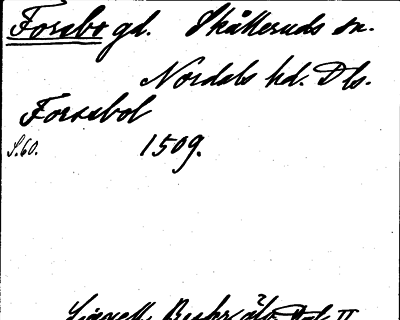 Forsbo gd. Skålleruds sn.
Nordals hd. Dls.
Forssbol
S.60. 1509.
Lignell, Beskr.